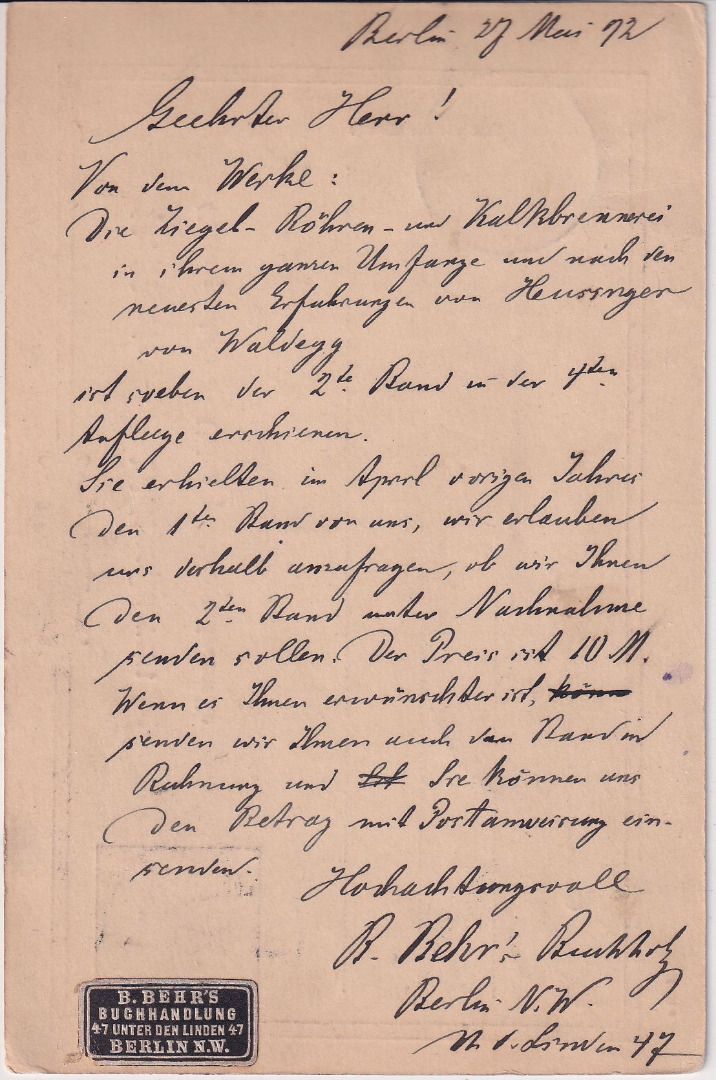 Berlin, 27 Mai 92
Geehrter Herr!
Von dem Werke:
Die Ziegel- Röhren- und Kalkbrennerei
in ihrem ganzen Umfange und nach den
neuesten Erfahrungen von Heusinger
von Waldegg
ist soeben der 2te Band in der 4ten
Auflage erschienen.
Sie erhielten im April vorigen Jahres
den 1ten Band von uns, wir erlauben
uns deshalb anzufragen, ob wir Ihnen
den 2ten Band unter Nachnahme
senden sollen. Der Preis ist 10 M.
Wenn es Ihnen erwünschter ist, könn
senden wir Ihnen auch den Band in
Rechnung und Sie können uns
den Betrag mit Postanweisung ein-
senden.
Hochachtungsvoll
B. Behr's Buchholg
Berlin N.W.
U. d. Linden 47
B. BEHR'S
BUCHHANDLUNG
47 UNTER DEN LINDEN 47
BERLIN N.W.